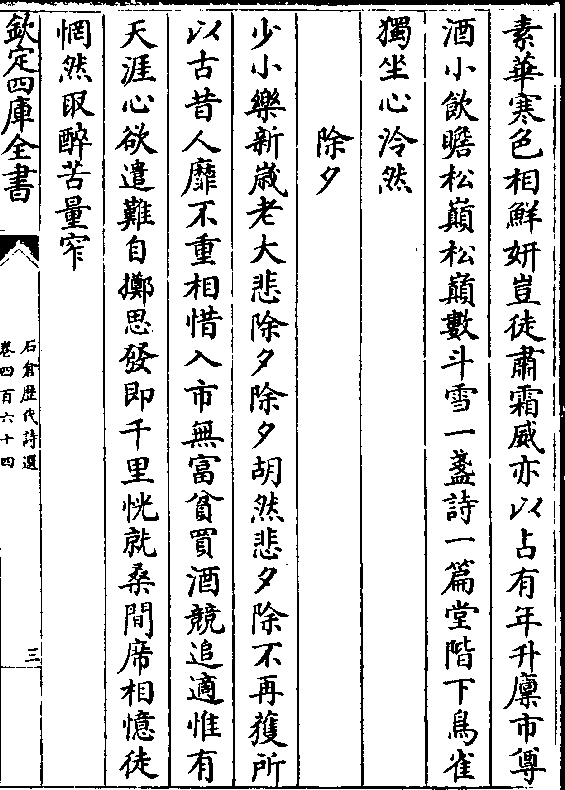 素華寒色相鮮妍豈徒肅霜威亦以占有年升廪市尊
酒小飲瞻松巔松巔數斗雪一盞詩一篇堂階下鳥雀
獨坐心泠然
除夕
少小樂新歲老大悲除夕除夕胡然悲夕除不再獲所
以古昔人靡不重相惜入市無富貧買酒競追適惟有
天涯心欲遣難自擲思發即千里恍就桑間席相憶徒
惘然取醉苦量窄
欽定四庫全書
石倉歷代詩選
卷四百六十四
三